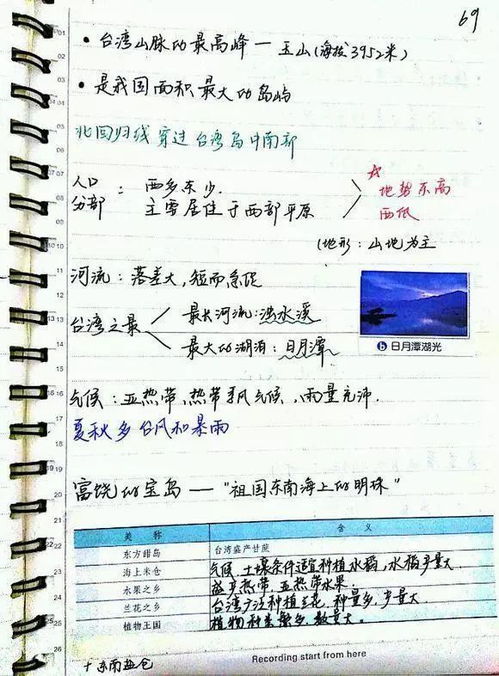 69
• 台湾山脉的最高峰 — 玉山(海拔3952米)
• 是我国面积最大的岛屿
北回归线穿过台湾岛中南部
人口分部：西多东少.
主要居住于西部平原
☆地势东高西低
(地形：山地为主
河流：落差大，短而急促
台湾之最
最长河流：浊水溪
最大的湖泊：日月潭
b 日月潭湖光
气候：亚热带、热带季风气候，雨量充沛.
夏秋多台风和暴雨
富饶的宝岛 —— "祖国东南海上的明珠"
美称 含义
东方甜岛 台湾盛产甘蔗
海上米仓 气候、土壤条件适宜种植水稻，水稻产量大
水果之乡 盛产热带、亚热带水果.
兰花之乡 台湾广泛种植兰花，种量多，产量大
植物王国 植物种类繁多，数量大。
+东南盐仓
Recording start from here